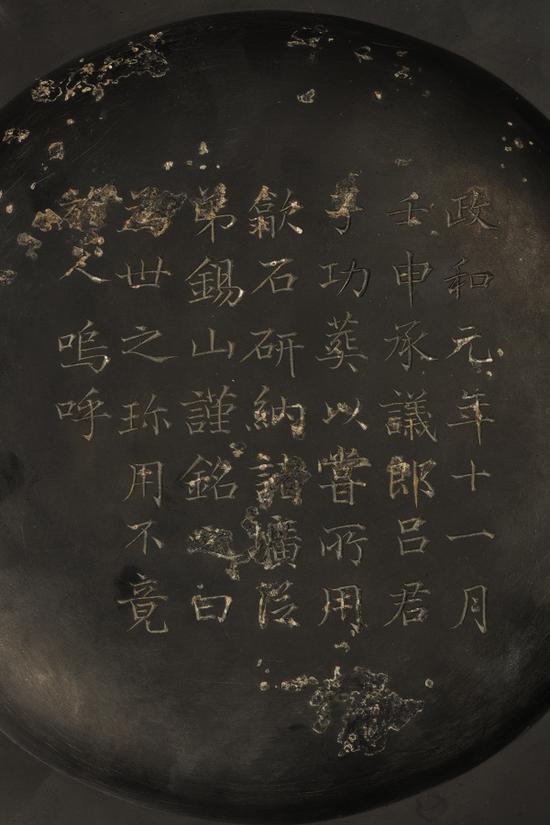 政和元年十一月
壬申承議郎吕君
子功葬以嘗所用
歙石研納諸壙從
弟錫山謹銘曰
為世之珎用不竟
嗚呼